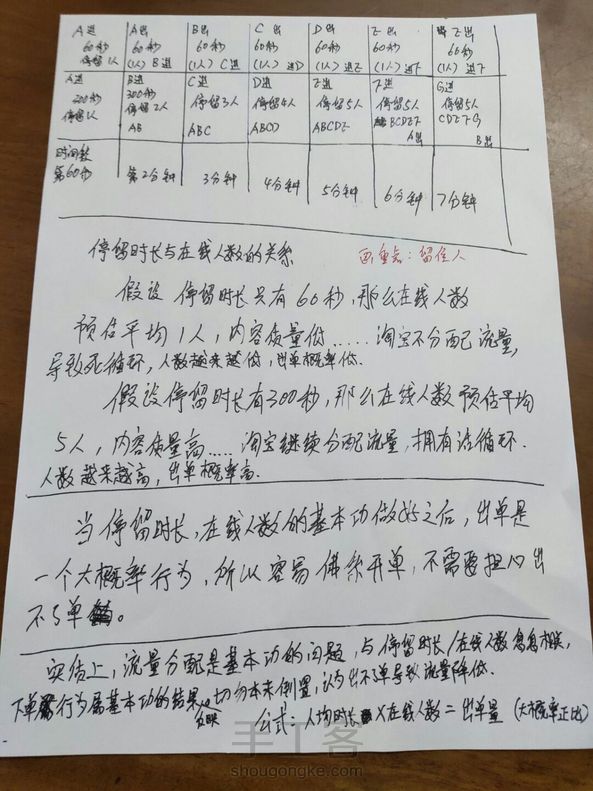 A进 A出 B出 C出 D出 E出 E出
60秒 60秒 60秒 60秒 60秒 60秒 60秒
停留1人 (1人) B进 (1人) C进 (1人) 进D (1人) 进E (1人) 进F (1人) 进F
A进 B进 C进 D进 E进 F进 G进
300秒 300秒 停留3人 停留4人 停留5人 停留5人 停留5人
停留1人 停留2人 ABC ABCD ABCDE BCDEF CDEFG
AB A出 B出
时间数
第60秒 第2分钟 3分钟 4分钟 5分钟 6分钟 7分钟
停留时长与在线人数的关系 画重点:留住人
假设 停留时长只有60秒,那么在线人数
预估平均1人,内容质量低......淘宝不分配流量,
导致死循环,人数越来越低,出单概率低.
假设停留时长有300秒,那么在线人数预估平均
5人,内容质量高.....淘宝继续分配流量,拥有活循环.
人数越来越高,出单概率高.
当停留时长,在线人数的基本功做好之后,出单是
一个大概率行为,所以容易佛系开单,不需要担心出
不了单。
实质上,流量分配是基本功的问题,与停留时长/在线人数息息相关,
下单行为属基本功的结果反映 切勿本末倒置,认为出不了单导致流量降低.
公式:人均时长×在线人数=出单量 (大概率正比)
手工客
shougongke.com